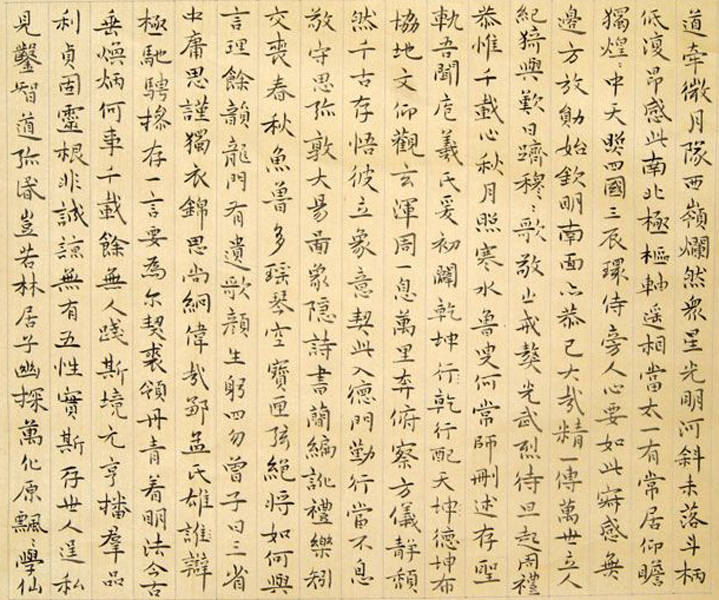 道牽微月隊西嶺爛然衆星光明河斜未落斗柄
低復昂感此南北極樞軸遥相當太一有常居仰瞻
獨煌〻中天照四國三辰環侍旁人心要如此寂感無
邊方放勛始欽明南面亦恭己大哉精一傳萬世立人
紀猗與歎日躋穆〻歌敬止戒獒光武烈待旦起周禮
恭惟千載心秋月照寒水魯叟何常師刪述存聖
軌吾聞庖羲氏爰初闢乾坤行乾行配天坤德坤布
協地文仰觀玄渾周一息萬里奔俯察方儀静頹
然千古存悟彼立象意契此入德門勤行當不息
敬守思弥敦大易圖象隱詩書簡編訛禮樂矧
交喪春秋魚魯多瑶琴空寶匣弦絕將如何興
言理餘韻龍門有遺歌顏生躬四勿曾子曰三省
中庸思謹獨衣錦思尚絅偉哉鄒孟氏雄誰辯
極馳騁操存一言要為尔契裘領丹青着明法今古
垂煥炳何事千載餘無人踐斯境元亨播羣品
利貞固靈根非誠諒無有五性實斯存世人逞私
見鑿智道弥昏豈若林居子幽探萬化原飄〻學仙